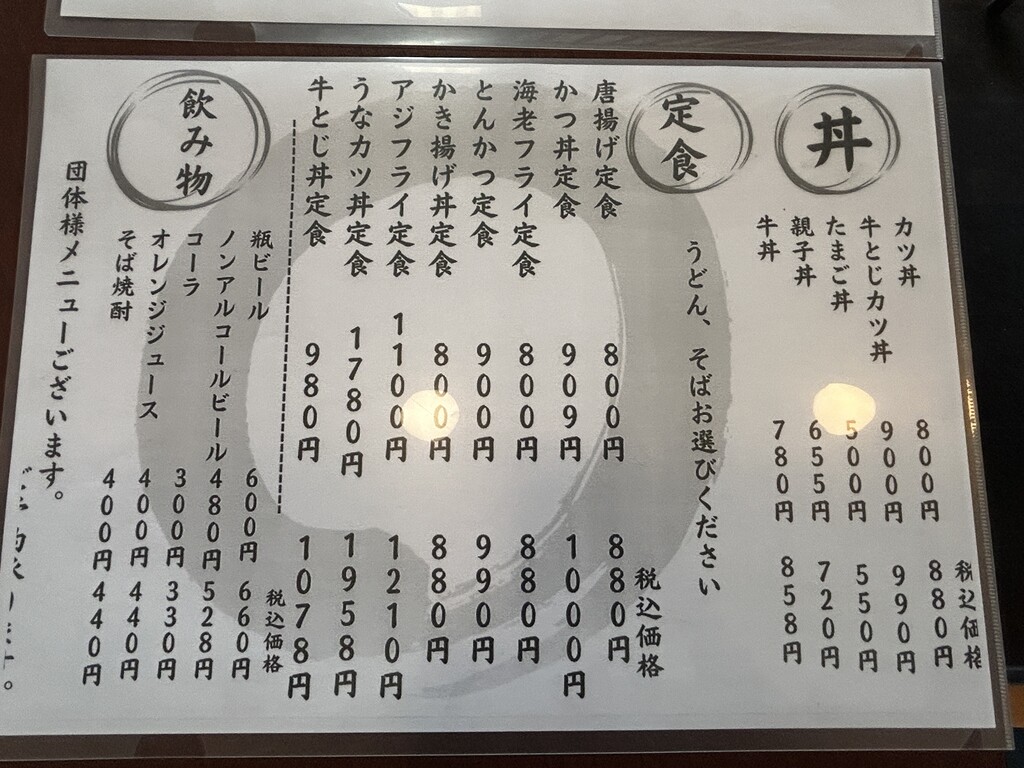 丼
税込価格
カツ丼 800円 880円
牛とじカツ丼 900円 990円
たまご丼 500円 550円
親子丼 655円 720円
牛丼 780円 858円
定食
うどん、そばお選びください
税込価格
唐揚げ定食 800円 880円
かつ丼定食 909円 1000円
海老フライ定食 800円 880円
とんかつ定食 900円 990円
かき揚げ丼定食 800円 880円
アジフライ定食 1100円 1210円
うなカツ丼定食 1780円 1958円
牛とじ丼定食 980円 1078円
飲み物
税込価格
瓶ビール 600円 660円
ノンアルコールビール 480円 528円
コーラ 300円 330円
オレンジジュース 400円 440円
そば焼酎 400円 440円
団体様メニューございます。